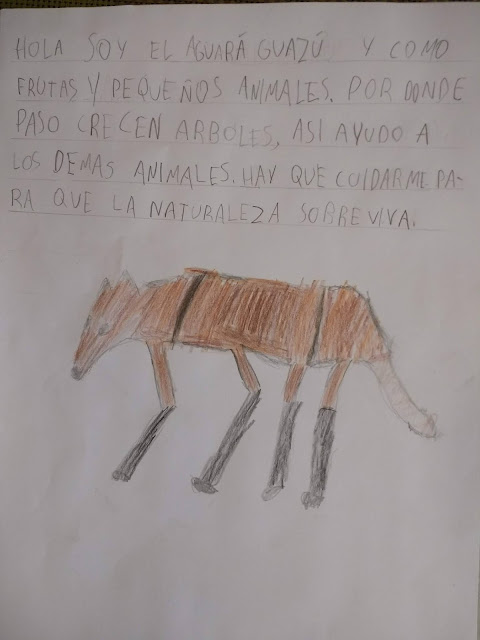 HOLA SOY EL AGUARÁ GUAZÚ Y COMO
FRUTAS Y PEQUEÑOS ANIMALES. POR DONDE
PASO CRECEN ARBOLES, ASI AYUDO A
LOS DEMAS ANIMALES. HAY QUE CUIDARME PA-
RA QUE LA NATURALEZA SOBREVIVA.